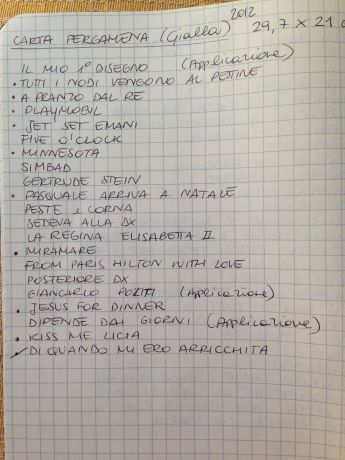 2012
CARTA PERGAMENA (Gialla) 29,7 × 21
IL MIO 1° DISEGNO (Applicazione)
• TUTTI I NODI VENGONO AL PETTINE
• A PRANZO DAL RE
• PLAYMOBIL
• JET SET EMANI
FIVE O'CLOCK
• MINNESOTA
SIMBAD
GERTRUDE STEIN
• PASQUALE ARRIVA A NATALE
PESTE e CORNA
SEDEVA ALLA DX
LA REGINA ELISABETTA II
• MIRAMARE
FROM PARIS HILTON WITH LOVE
POSTERIORE DX
GIANCARLO POLITI (Applicazione)
• JESUS FOR DINNER
DIPENDE DAI GIORNI (Applicazione)
• KISS ME LICIA
✓ DI QUANDO MI ERO ARRICCHITA